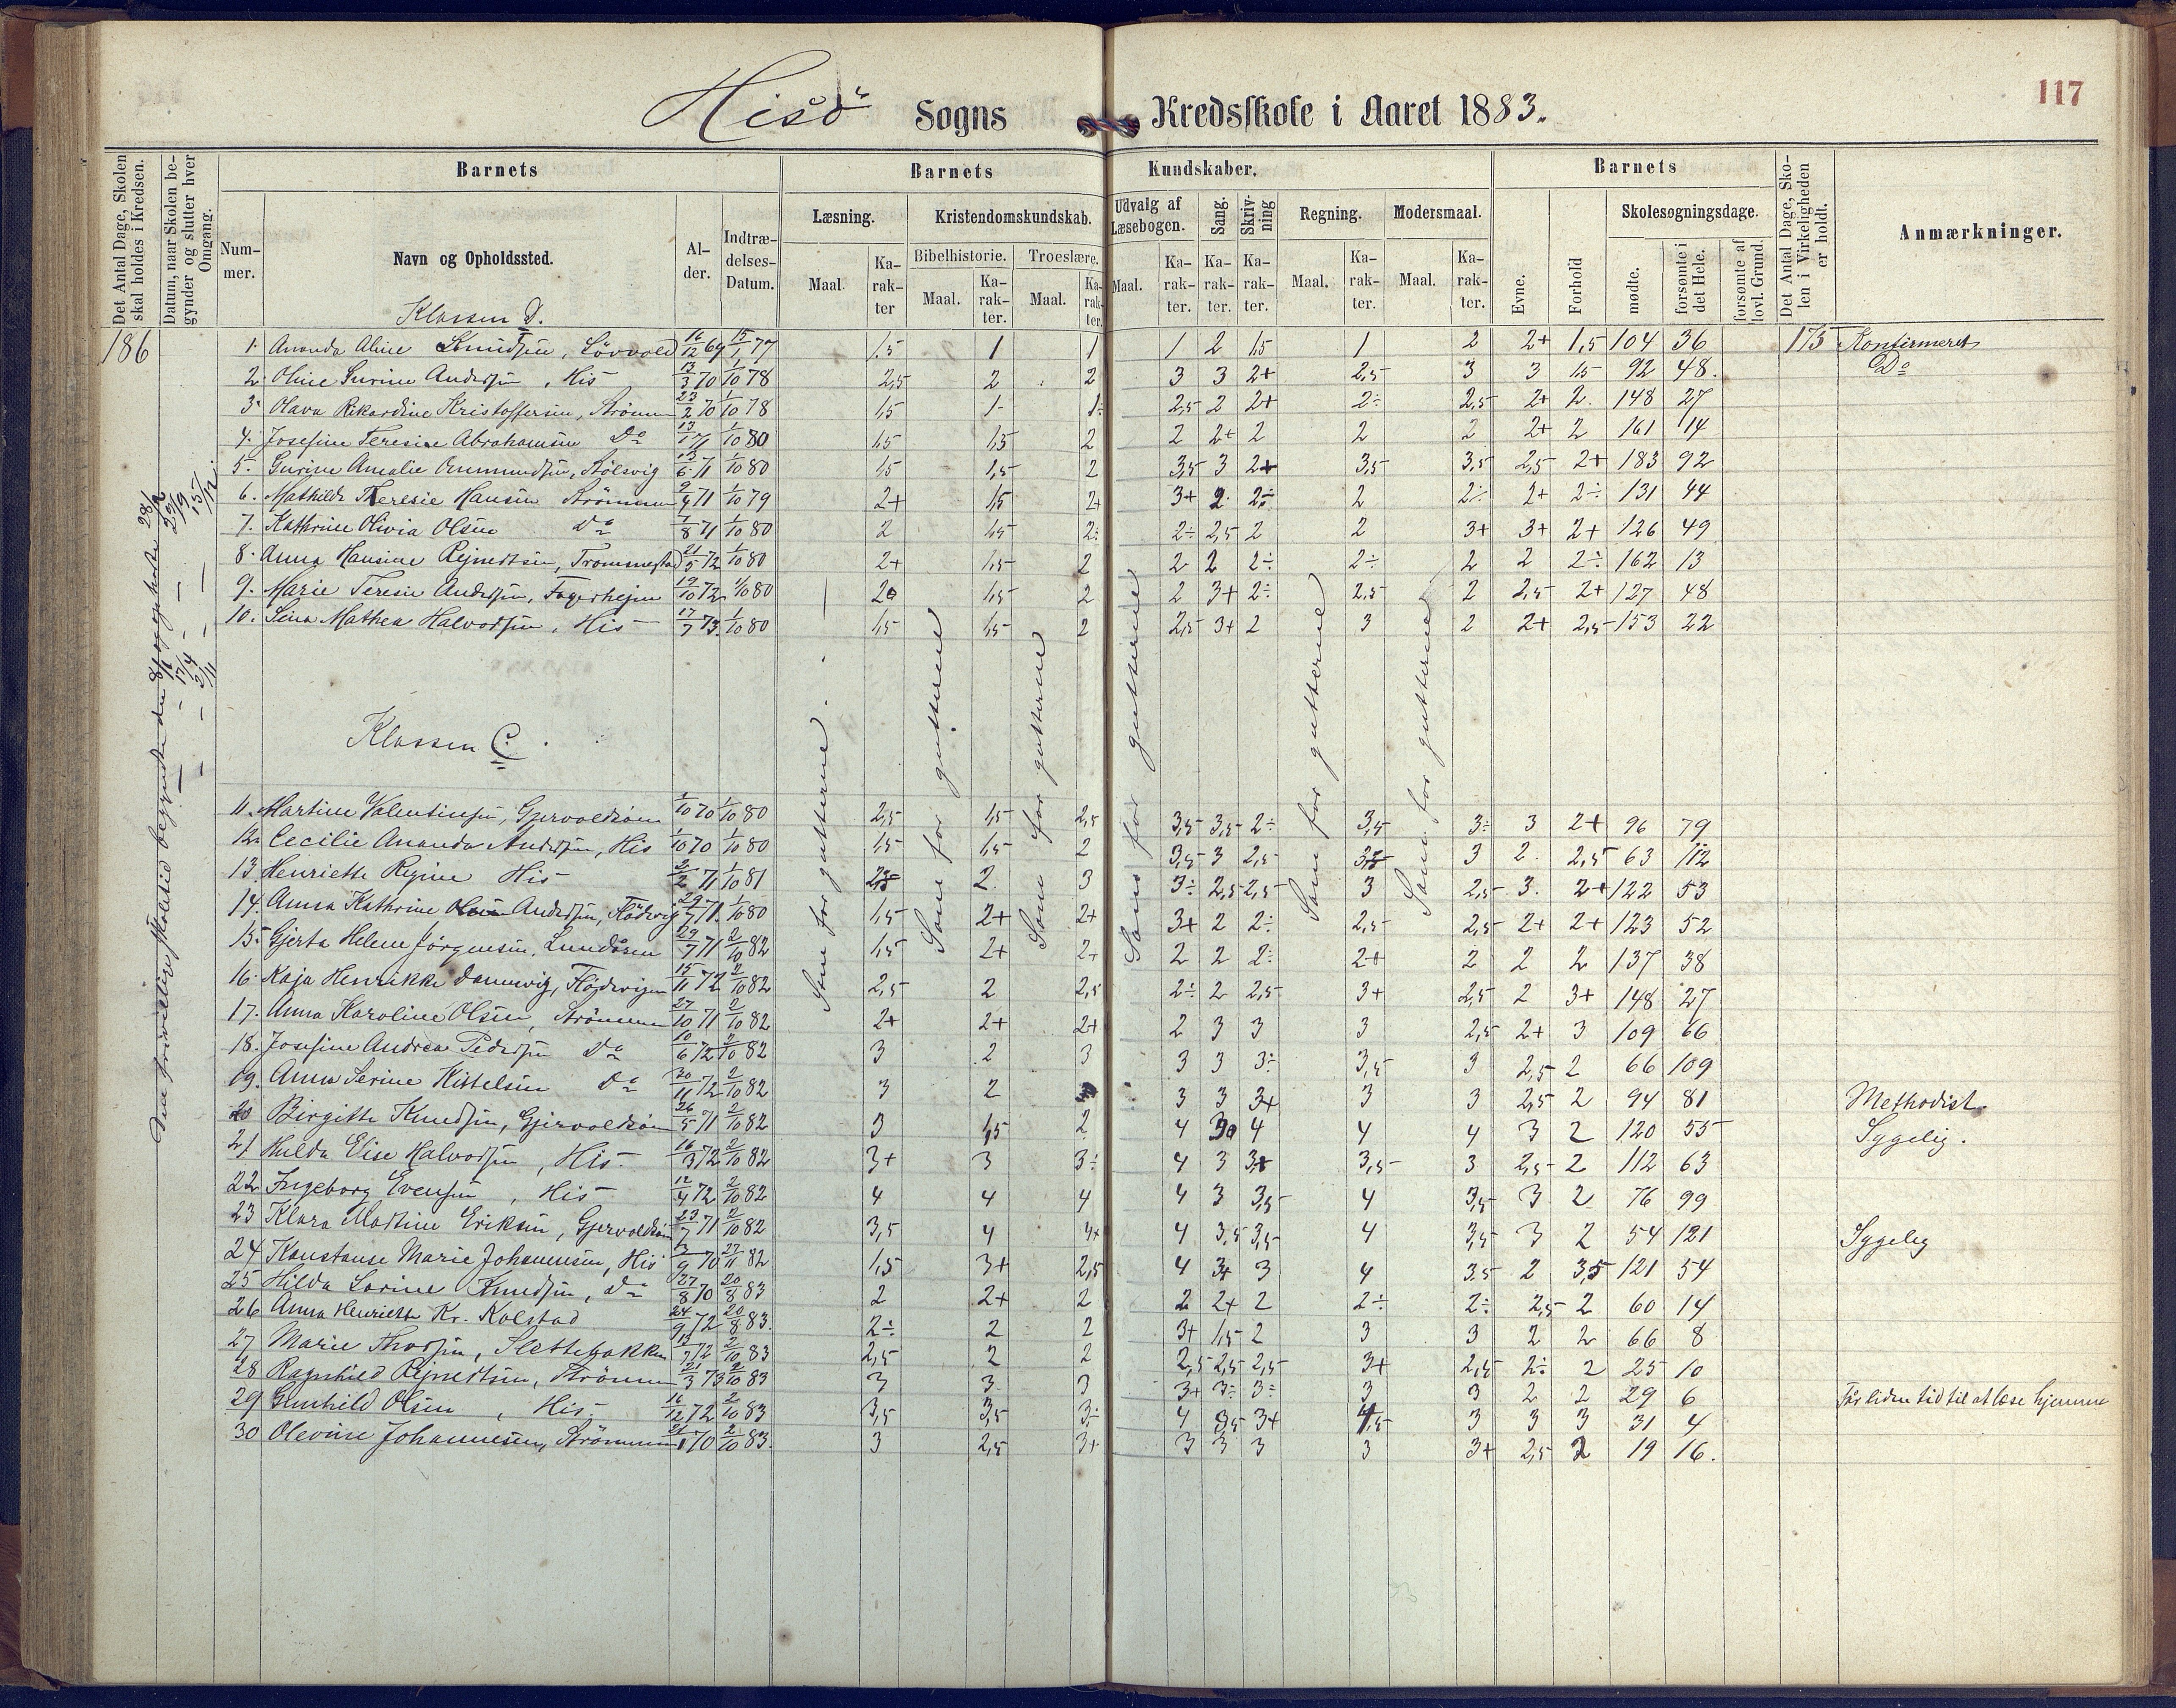 117
Hisö Sogns Kredsskole i Aaret 1883.
Det Antal Dage, Skolen skal holdes i Kredsen.
Datum, naar Skolen begynder og slutter hver Omgang.
Barnets
Num-mer.
Navn og Opholdssted.
Al-der.
Indtræ-delses-Datum.
Barnets Kundskaber.
Læsning.
Kristendomskundskab.
Bibelhistorie. Troeslære.
Udvalg af Læsebogen.
Sang.
Skriv-ning
Regning.
Modersmaal.
Maal. Ka-rak-ter
Barnets
Evne.
Forhold
Skolesøgningsdage.
mødte.
forsømte i det Hele.
forsømte af lovl. Grund.
Det Antal Dage, Sko-len i Virkeligheden er holdt.
Anmærkninger.
Klassen D.
186 1. Ananda Aline Knudsen, Lövvold 16/12 69 15/1 77 1.5 1 1 1 2 1,5 1 2 2+ 1,5 104 36 175 Konfirmeret
2. Oline Surine Andersen, His 13/3 70 1/10 78 2,5 2 2 3 3 2+ 2,5 3 3 1,5 92 48. Do
3. Olava Rikardine Kristoffersen, Strömm 23/2 70 1/10 78 1,5 1- 1÷ 2,5 2 2+ 2÷ 2,5 2+ 2. 148 27
4. Josefine Teresie Abrahamsen Do 13/1 71 1/10 80 1,5 1,5 2 2 2+ 2 2 2 2+ 2 161 14
5. Gurine Amalie Ommundsen, Kölsvig 13/6 71 1/10 80 1,5 1,5 2 3,5 3 2+ 3,5 3,5 2,5 2+ 183 92
6. Mathilde Theresie Hansen Strömmen 9/4 71 1/10 79 2+ 1,5 2+ 3+ 2 2÷ 2 2÷ 2+ 2÷ 131 44
7. Kathrine Olivia Olsen Do 7/8 71 1/10 80 2 1,5 2÷ 2÷ 2,5 2 2 3+ 3+ 2+ 126 49
8. Anna Hansine Rejnertsen, Trommestad 21/5 72 1/10 80 2+ 1,5 2 2 2 2÷ 2÷ 2 2 2÷ 162 13
9. Marie Teresie Andersen, Fagerhejm 19/10 72 1/10 80 2 1,5 2 2 3+ 2÷ 2,5 2 2,5 2+ 127 48
10. Lina Mathea Halvorsen, His 17/7 73 1/10 80 1,5 1,5 2 2,5 3+ 2 3 2 2+ 2,5 153 22
Klassen C.
11. Martine Valentinsen, Gjervoldsöen 1/10 70 1/10 80 2,5 1,5 2,5 3,5 3,5 2÷ 3,5 3÷ 3 2+ 96 79
12. Cecilie Ananda Andersen, His 1/10 70 1/10 80 1,5 1,5 2 3,5 3 2,5 3,5 3 2. 2,5 63 112
13. Henriette Regine His 2/2 71 1/10 81 2,5 2. 3 3÷ 2,5 2,5 3 2,5 3. 2+ 122 53
14. Anna Kathrine Andersen, Flödevig 29/7 71 1/10 80 1,5 2+ 2+ 3+ 2 2÷ 2,5 2,5 2+ 2+ 123 52
15. Gjerta Helene Jörgensen, Lundåsen 29/7 71 2/10 82 1,5 2+ 2+ 2 2 2÷ 2+ 2 2 2 137 38
16. Kaja Henrikke Dannevig, Flødevigen 15/11 72 2/10 82 2,5 2 2,5 2÷ 2 2,5 3+ 2,5 2 3+ 148 27
17. Anna Karoline Olsen, Strömmen 27/10 71 2/10 82 2+ 2+ 2+ 2 3 3 3 2,5 2+ 3 109 66
18. Josefine Andrea Pedersen Do 10/6 72 2/10 82 3 2 3 3 3 3÷ 3,5 3 2,5 2 66 109
19. Anna Serine Kittelsen Do 30/11 72 2/10 82 3 2 3 3 3+ 3 3 2,5 2 94 81 Methodist.
20 Birgitte Knudsen, Gjervoldsöen 26/5 71 2/10 82 3 1,5 2 4 3 4 4 4 3 2 120 55 Sygelig.
21 Hulda Elise Halvorsen, His. 16/3 72 2/10 82 3+ 3 3÷ 4 3 3+ 3,5 3 2,5 2 112 63
22 Ingeborg Evensen, His 12/4 72 2/10 82 4 4 4 4 3 3,5 4 3,5 3 2 76 99
23 Klara Martine Eriksen, Gjervoldsöen 23/7 71 2/10 82 3,5 4 4+ 4 3,5 3,5 4 3,5 3 2 54 121 Sygelig
24 Konstanse Marie Johannesen, His 3/9 70 27/11 82 1,5 3+ 2,5 4 3+ 3 4 3.5 2 3,5 121 54
25 Hilda Lovine Knudsen, Do 27/8 70 20/8 83 2 2+ 2 2 2+ 2 2÷ 2÷ 2,5 2 60 14
26 Anna Henriette Kr. Kolstad 24/9 72 20/8 83. 2÷ 2 2 3+ 1,5 2 3 3 2 2 66 8
27 Marie Thorsen, Slettebakken 13/7 72 2/10 83 2,5 2 2 2,5 2,5 2,5 3+ 2,5 2÷ 2 25 10
28 Ragnhild Rejnertsen, Strömmen 21/3 73 2/10 83 3 3 3 3+ 3÷ 3÷ 3 3 2 2 29 6 Får liden tid til at læse hjemme
29 Gunhild Olsen, His 16/12 72 2/10 83 3,5 3,5 3÷ 4 3,5 3+ 4,5 3 3 3 31 4
30 Olevine Johannesen, Strömmen 70 2/10 83. 3 2,5 3+ 3 3 3 3 3+ 2,5 2 19 16.
Som for gutterne.
Som for gutterne
Som for gutterne
Som for gutterne
Som for gutterne
Som for gutterne
Den frivillige skoletid begyndte den 8/1 og ophørte 28/2